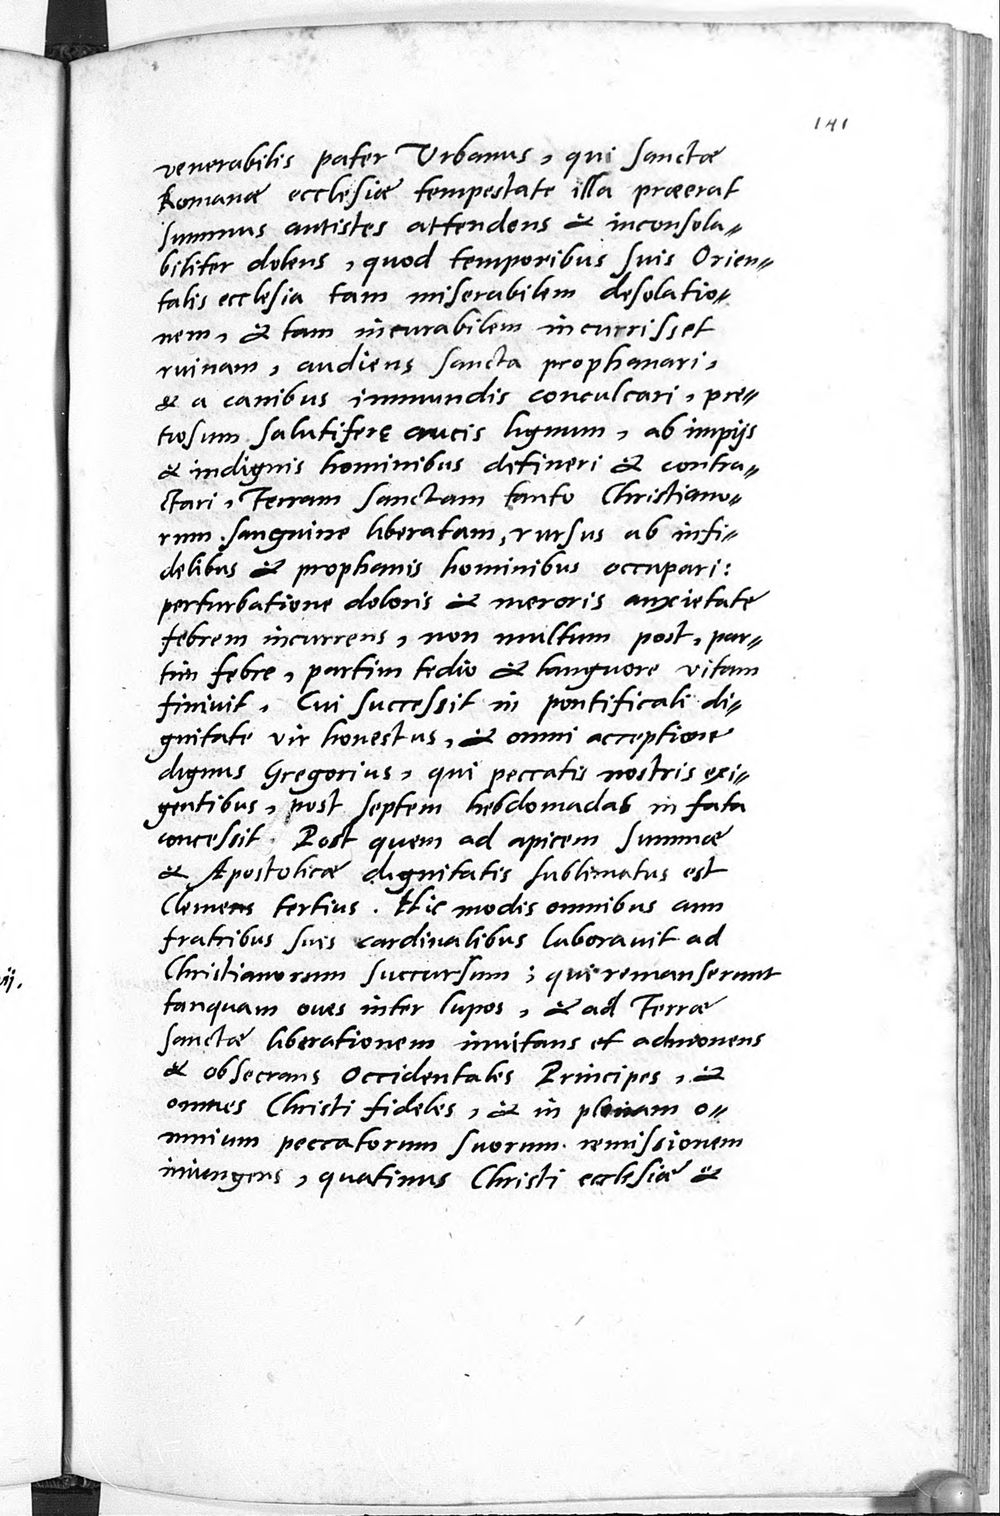 141
venerabilis pater Urbanus, qui sanctæ
Romanæ ecclesiæ tempestate illa præerat
summus antistes attendens & inconsola„
biliter dolens, quod temporibus suis Orien„
talis ecclesia tam miserabilem desolatio„
nem, & tam incurabilem incurrisset
ruinam, audiens sancta prophanari,
& a canibus immundis conculcari, pre„
tiosum salutiferę crucis lignum, ab impijs
& indignis hominibus detineri & contra„
ctari, Terram sanctam tanto Christiano„
rum sanguine liberatam, rursus ab infi„
delibus & prophanis hominibus occupari:
perturbatione doloris & meroris anxietate
febrem incurrens, non multum post, par„
tim febre, partim tedio & languore vitam
finivit, Cui successit in pontificali di„
gnitate vir honestus, & omni acceptione
dignus Gregorius, qui peccatis nostris exi„
gentibus, post septem hebdomadas in fata
concessit. Post quem ad apicem summæ
& Apostolicæ dignitatis sublimatus est
Clemens tertius. Hic modis omnibus cum
fratribus suis cardinalibus laboravit ad
Christianorum succursum; qui remanserunt
ij.
tanquam oves inter lupos, & ad Terræ
sanctæ liberationem invitans et admonens
& obsecrans Occidentales Principes, &
omnes Christi fideles, & in plenam o„
mnium peccatorum suorum remissionem
iniungens, quatinus Christi ecclesiæ &